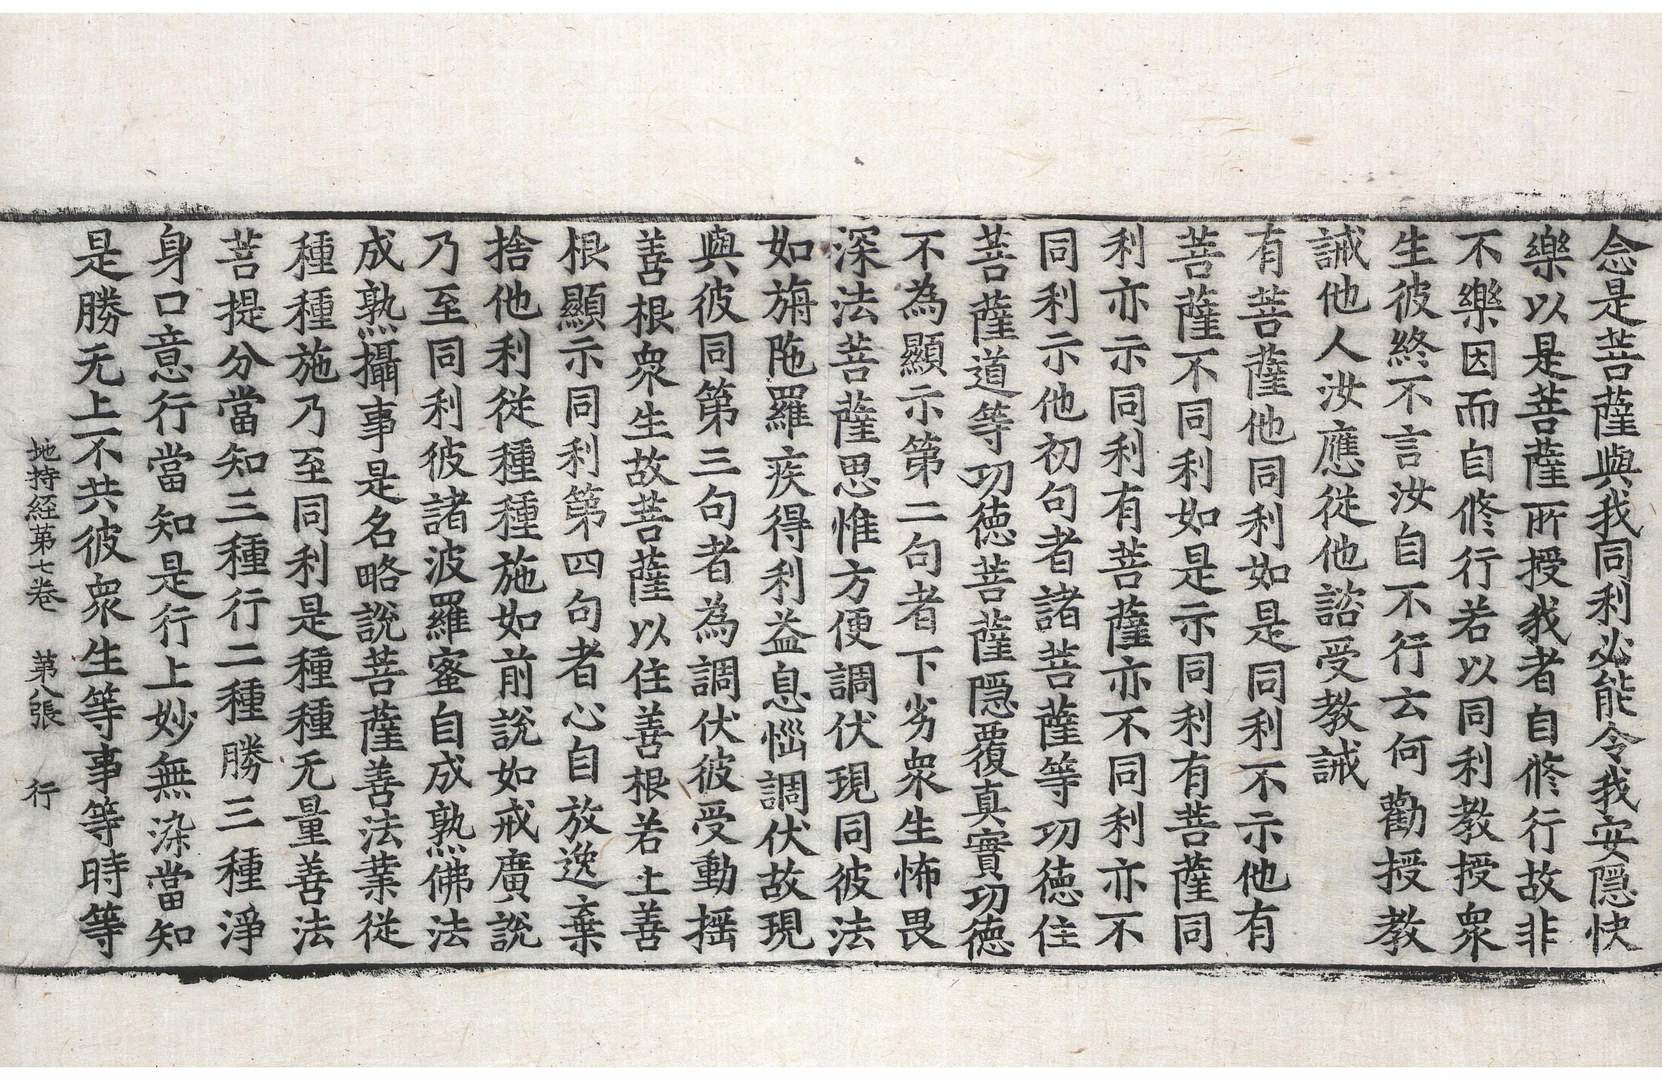 念是菩薩與我同利必能令我安隱快
樂以是菩薩所授我者自脩行故非
不樂因而自脩行若以同利教授衆
生彼終不言汝自不行云何勸授教
誡他人汝應従他諮受教誡
有菩薩他同利如是同利不示他有
菩薩不同利如是示同利有菩薩同
利亦示同利有菩薩亦不同利亦不
同利示他初句者諸菩薩等功徳住
菩薩道等功徳菩薩隱覆真實功徳
不為顯示第二句者下劣衆生怖畏
深法菩薩思惟方便調伏現同彼法
如旃陁羅疾得利益息惱調伏故現
與彼同第三句者為調伏彼受動揺
善根衆生故菩薩以住善根若上善
根顯示同利第四句者心自放逸棄
捨他利従種種施如前說如戒廣說
乃至同利彼諸波羅蜜自成熟佛法
成熟攝事是名略說菩薩善法業従
種種施乃至同利是種種无量善法
菩提分當知三種行二種勝三種淨
身口意行當知是行上妙無染當知
是勝无上不共彼衆生等事等時等
地持経第七卷 第八張 行